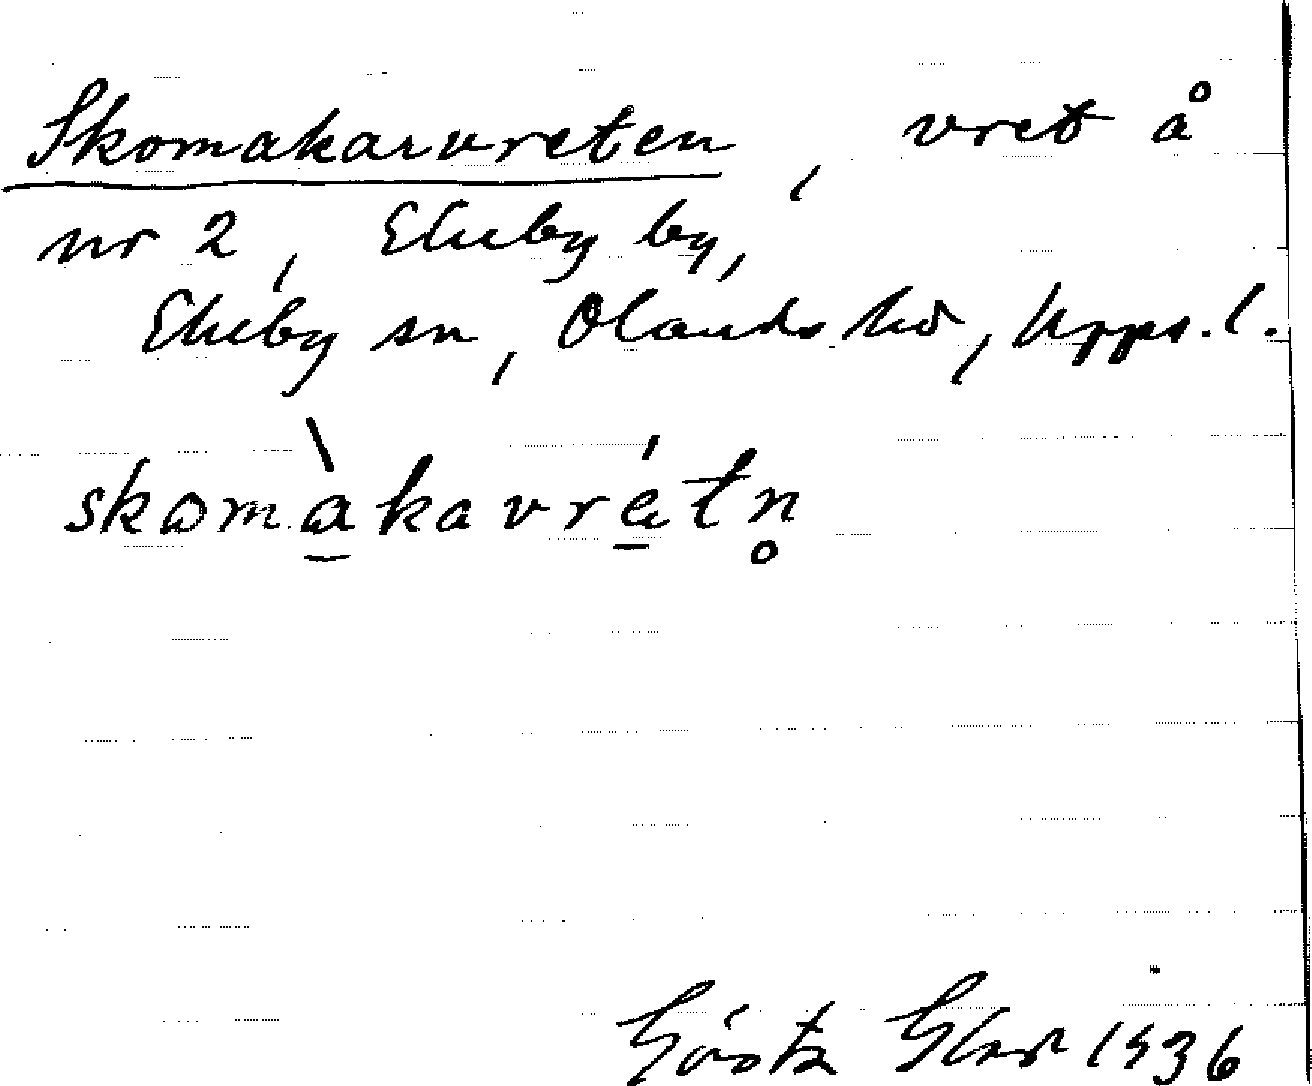 Skomakarvreten, vret å
nr 2, Ekeby by,
Ekeby sn, Olands hd, Upps. l.
skomàkavrétn̥
Gösta 1936